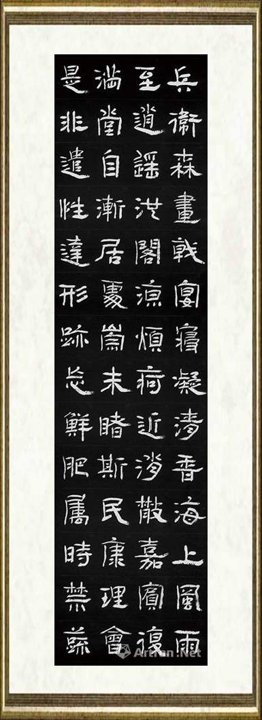 兵衛森畫戟宴寢凝清香海上風雨
至逍遥池閣涼煩疴近消散嘉賓復
滿堂自漸居處崇未睹斯民康理會
是非遣性達形跡忘鮮肥屬時禁蔬
Artron.Net